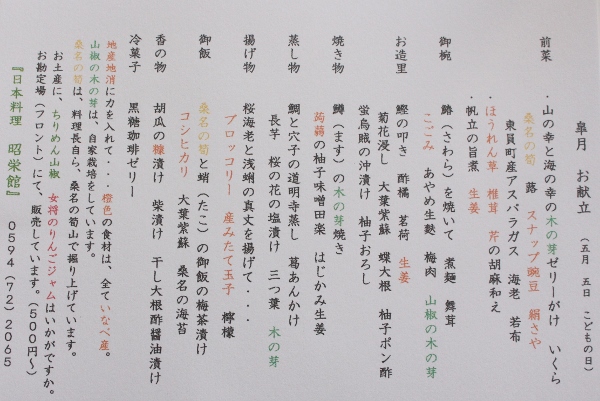 皐月 お献立 (五月 五日 こどもの日)
前菜 ・山の幸と海の幸の木の芽ゼリーがけ いくら
桑名の筍 蕗 スナップ豌豆 絹さや
東員町産アスパラガス 海老 若布
・ほうれん草 椎茸 芹の胡麻和え
・帆立の旨煮 生姜
御椀 鰆(さわら)を焼いて 煮麺 舞茸
こごみ あやめ生麩 梅肉 山椒の木の芽
お造里 鰹の叩き 酢橘 茗荷 生姜
菊花浸し 大葉紫蘇 蝶大根 柚子ポン酢
蛍烏賊の沖漬け 柚子おろし
焼き物 鱒(ます)の木の芽焼き
蒟蒻の柚子味噌田楽 はじかみ生姜
蒸し物 鯛と穴子の道明寺蒸し 葛あんかけ
長芋 桜の花の塩漬け 三つ葉 木の芽
揚げ物 桜海老と浅蜊の真丈を揚げて・・・
ブロッコリー 産みたて玉子 檸檬
御飯 桑名の筍と蛸(たこ)の御飯の梅茶漬け
コシヒカリ 大葉紫蘇 桑名の海苔
香の物 胡瓜の糠漬け 柴漬け 干し大根酢醤油漬け
冷菓子 黒糖珈琲ゼリー
地産地消に力を入れて・・・橙色の食材は、全ていなべ産。
山椒の木の芽は、自家栽培をしています。
桑名の筍は、料理長自ら、桑名の筍山で掘り上げています。
お土産に、ちりめん山椒 女将のりんごジャムはいかがですか。
お勘定場(フロント)にて、販売しています。(500円〜)
『日本料理 昭栄館』 0594(72)2065